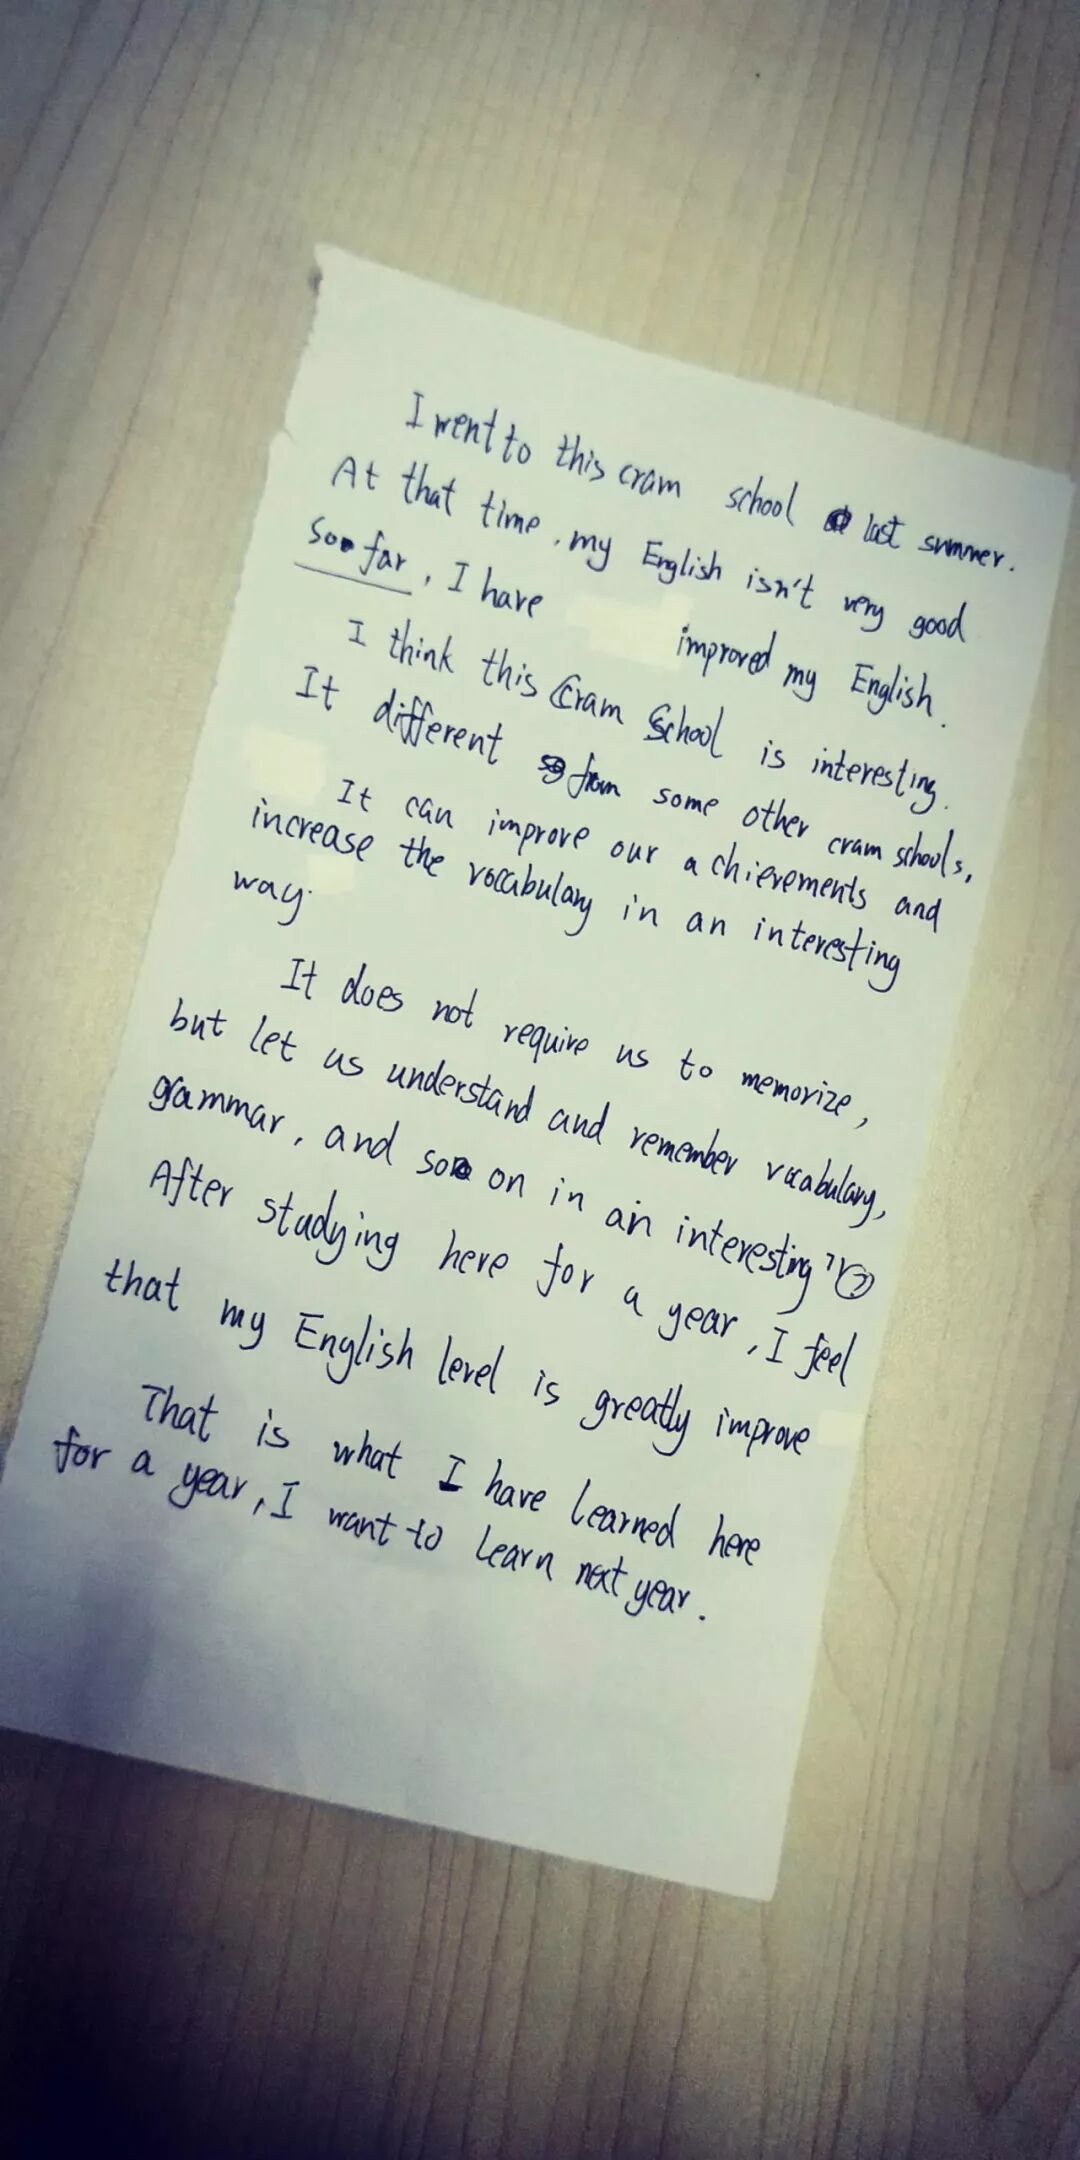 I went to this cram school last summer.
At that time, my English isn't very good
so far, I have improved my English.
I think this Cram School is interesting.
It different from some other cram schools,
It can improve our achievements and
increase the vocabulary in an interesting
way.
It does not require us to memorize,
but let us understand and remember vocabulary,
grammar, and so on in an interesting
After studying here for a year, I feel
that my English level is greatly improve
That is what I have learned here
for a year, I want to learn next year.